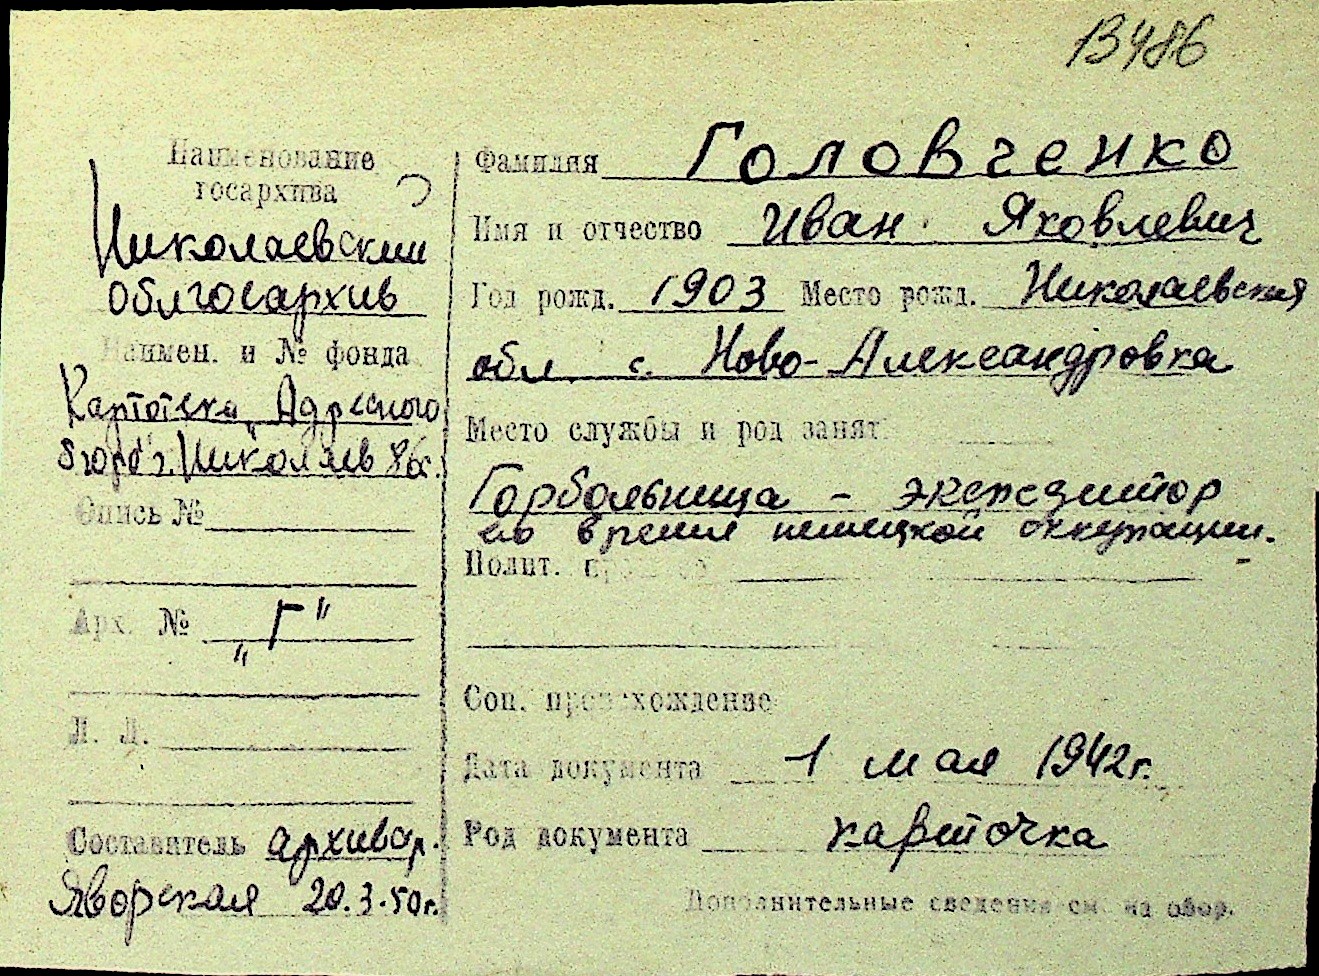 13486
Наименование
госархива
Николаевский
облгосархив
Наимен. и № фонда
Картотека „Адресного
бюро" г. Николаев
Опись №
Арх. № „Г"
Л. Л.
Составитель архивар.
Яворская 20.3.50г.
Фамилия Головченко
Имя и отчество Иван Яковлевич
Год рожд. 1903 Место рожд. Николаевская
обл. с. Ново-Александровка
Место службы и род занят.
Горбольница - экспедитор
во время немецкой оккупации.
Полит.
Соц. происхождение
Дата документа 1 мая 1942г.
Род документа карточка
Дополнительные сведения см. на обор.